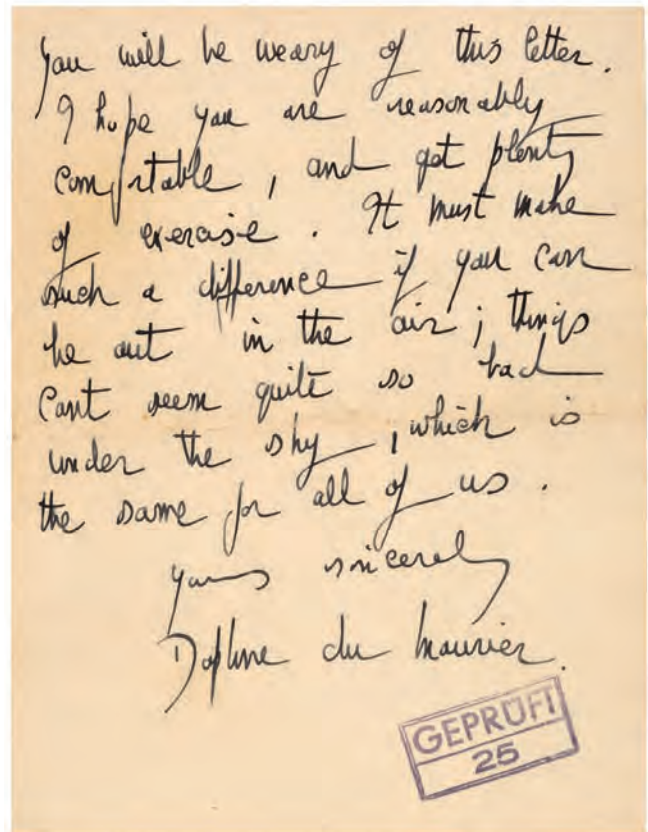 you will be weary of this letter.
I hope you are reasonably
comfortable, and get plenty
of exercise. It must make
such a difference if you can
be out in the air; things
cant seem quite so bad
under the sky, which is
the same for all of us.
Yours sincerely
Daphne du Maurier.
GEPRÜFT
25